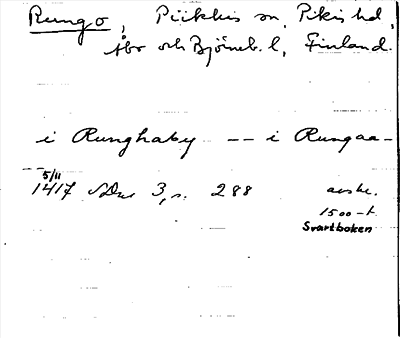 Rungo, Piikkis sn, Pikis hd,
Åbo och Björneb. l, Finland.
i Runghaby -- i Rungaa-
5/11
1417 SDns 3, s. 288 avskr.
1500-t.
Svartboken